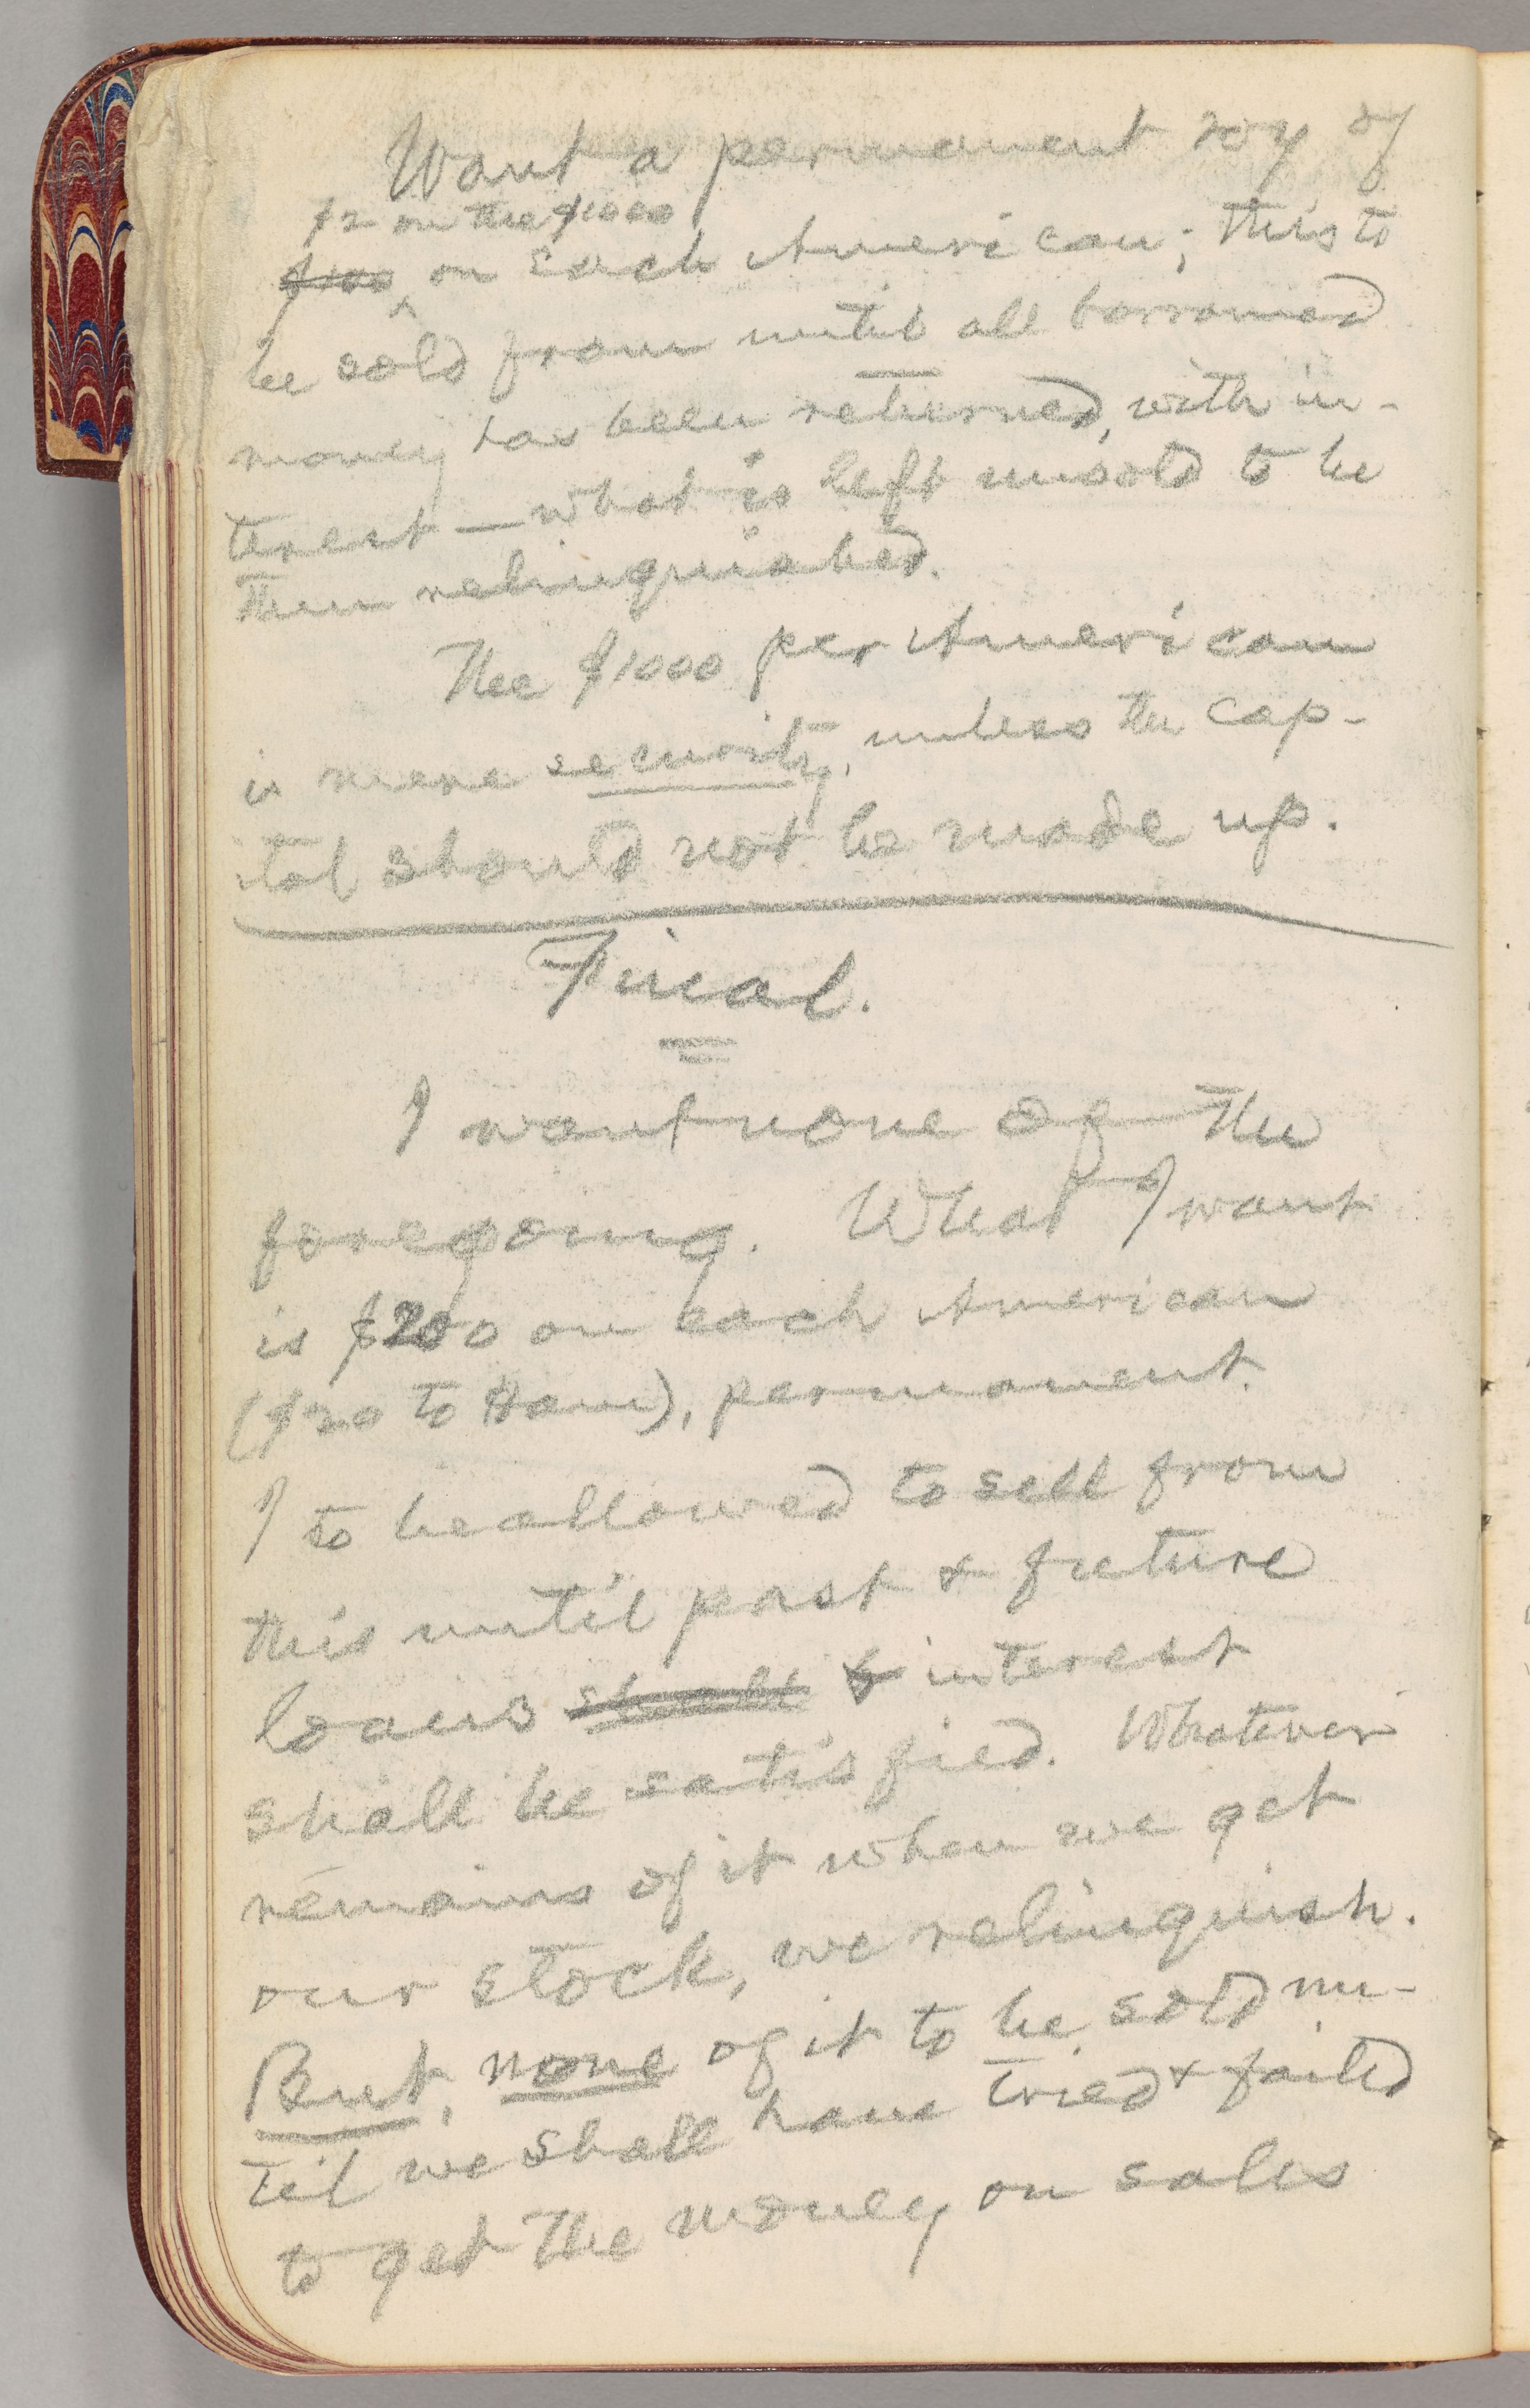 Want a permanent roy of
$2 on the $1000
$100 on each American; this to
be sold from until all borrowed
money has been returned, with in-
terest — what is left unsold to be
then relinquished.
The $1000 per American
is mere security, unless the cap-
ital should not be made up.
Final.
I want none of the
foregoing. What I want
is $200 on each American
($20 to Ham), permanent.
I to be allowed to sell from
this until past & future
loans shall & interest
shall be satisfied. Whatever
remains of it when we get
our stock, we relinquish.
But, none of it to be sold un-
til we shall have tried & failed
to get the money on sales